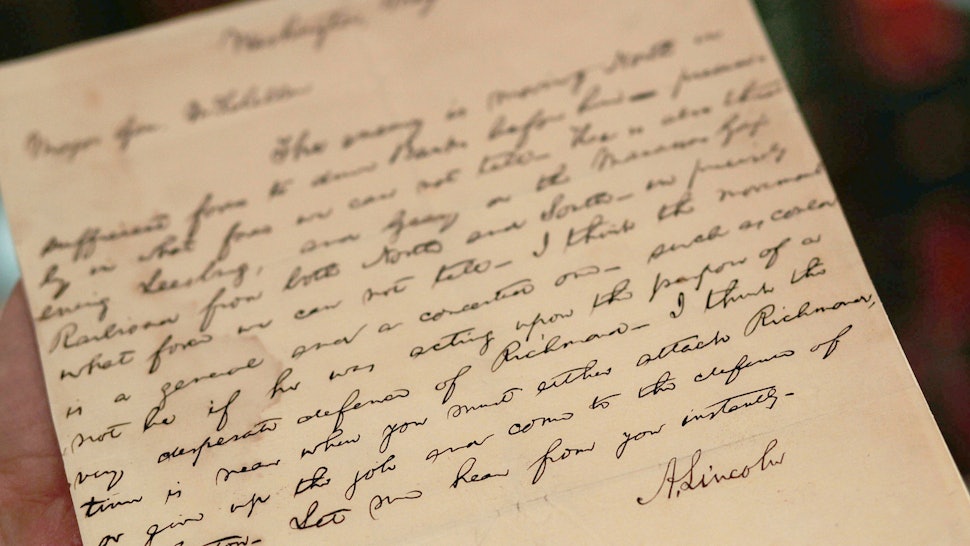 Washington, May
Major Gen. McClellan
The enemy is moving North in
sufficient force to drive Banks before him — precise-
ly in what force we can not tell — He is also threat
ening Leesburg, and Geary on the Manassas Gap
Railroad from both North and South — in precisely
what force we can not tell — I think the movement
is a general and a concerted one — such as could
not be if he was acting upon the purpose of a
very desperate defence of Richmond — I think the
time is near when you must either attack Richmond,
or give up the job and come to the defence of
Let me hear from you instantly —
A. Lincoln